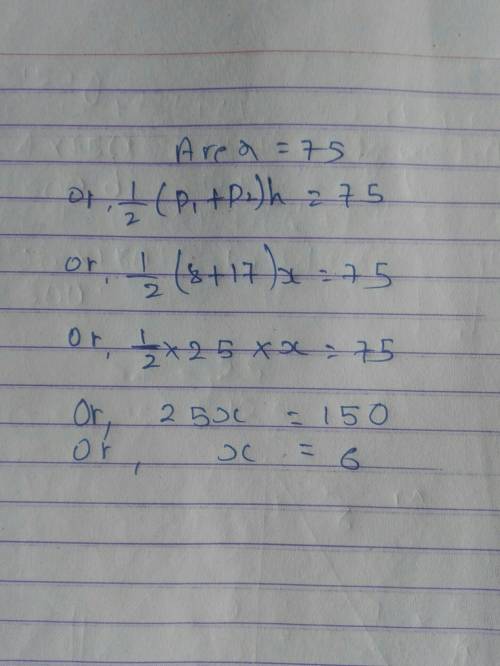 Area = 75
or, 1/2 (P₁ + P₂)h = 75
or, 1/2 (8+17)x = 75
or, 1/2 × 25 × x = 75
Or, 25x = 150
Or, x = 6